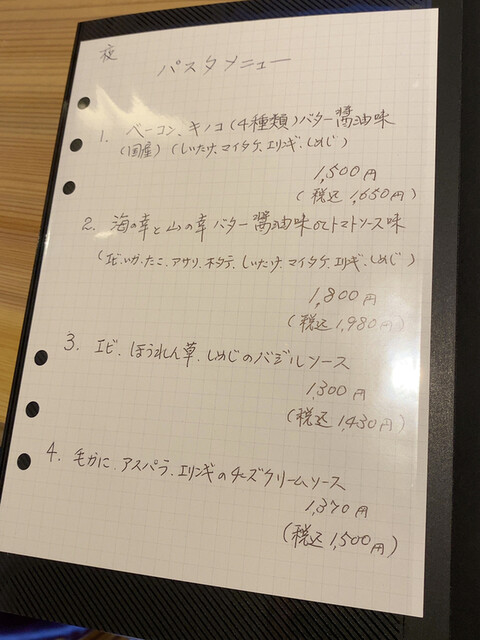 夜
パスタメニュー
1. ベーコン、キノコ(4種類)バター醤油味
(国産)(しいたけ、マイタケ、エリンギ、しめじ)
1,500円
(税込1,650円)
2. 海の幸と山の幸バター醤油味orトマトソース味
(エビ、いか、たこ、アサリ、ホタテ、しいたけ、マイタケ、エリンギ、しめじ)
1,800円
(税込1,980円)
3. エビ、ほうれん草、しめじのバジルソース
1,300円
(税込1,430円)
4. 毛がに、アスパラ、エリンギのチーズクリームソース
1,370円
(税込1,500円)